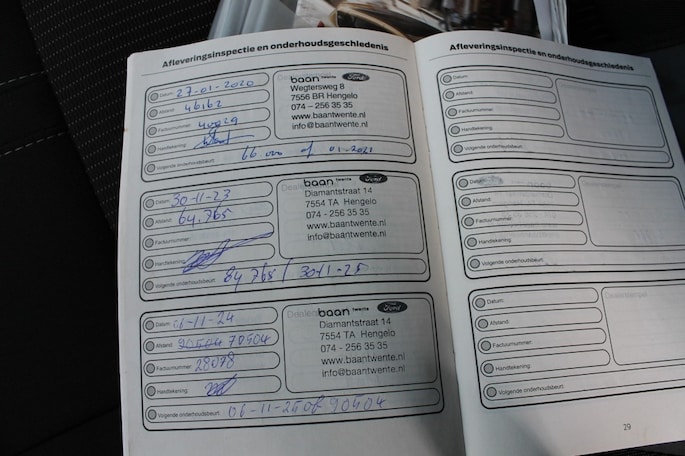 Afleveringsinspectie en onderhoudsgeschiedenis
Datum: 27-01-2020
Afstand: 46162
Factuurnummer:
Handtekening:
Volgende onderhoudsbeurt: 66.000 of 01-2021
baan twente Ford
Wegtersweg 8
7556 BR Hengelo
074 - 256 35 35
www.baantwente.nl
info@baantwente.nl
Datum: 30-11-23
Afstand: 64.765
Factuurnummer:
Handtekening:
Volgende onderhoudsbeurt: 84765 / 30-11-25
baan twente Ford
Diamantstraat 14
7554 TA Hengelo
074 - 256 35 35
www.baantwente.nl
info@baantwente.nl
Datum: 06-11-24
Afstand: 70904
Factuurnummer: 28078
Handtekening:
Volgende onderhoudsbeurt: 06-11-25 of 90904
baan twente Ford
Diamantstraat 14
7554 TA Hengelo
074 - 256 35 35
www.baantwente.nl
info@baantwente.nl
Afleveringsinspectie en onderhoudsgeschiedenis
Datum:
Afstand:
Factuurnummer:
Handtekening:
Volgende onderhoudsbeurt:
Datum:
Afstand:
Factuurnummer:
Handtekening:
Volgende onderhoudsbeurt:
Datum:
Afstand:
Factuurnummer:
Handtekening:
Volgende onderhoudsbeurt:
29